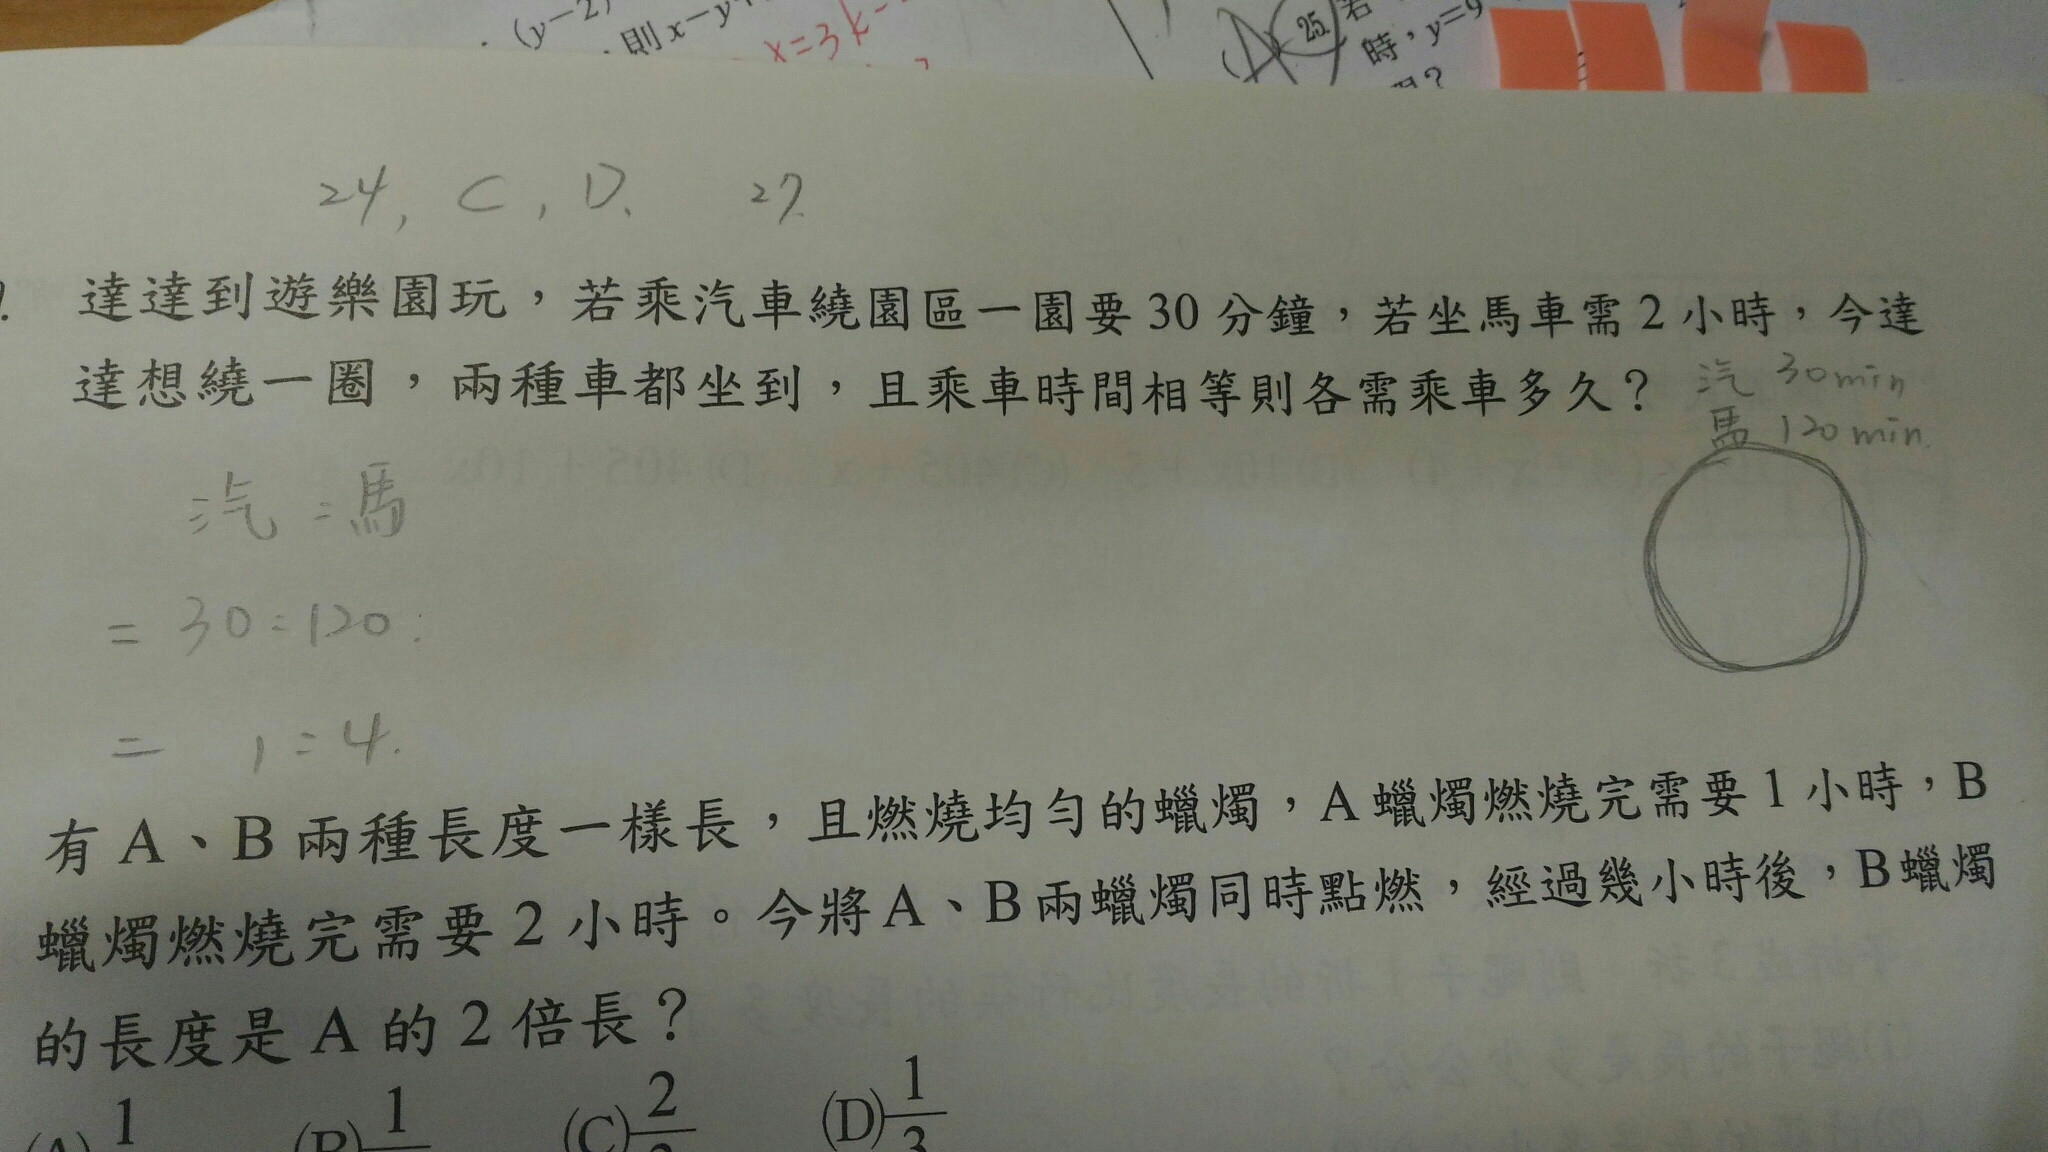 (y-2)
則 x-y
x=3k-
25
若
時，y=9
24, C, D. 27.
達達到遊樂園玩，若乘汽車繞園區一園要 30 分鐘，若坐馬車需 2 小時，今達
達想繞一圈，兩種車都坐到，且乘車時間相等則各需乘車多久？
汽 30min
馬 120min.
汽：馬
= 30:120
= 1:4.
有 A、B 兩種長度一樣長，且燃燒均勻的蠟燭，A 蠟燭燃燒完需要 1 小時，B
蠟燭燃燒完需要 2 小時。今將 A、B 兩蠟燭同時點燃，經過幾小時後，B 蠟燭
的長度是 A 的 2 倍長？
(A) 1 (B) 1 (C) 2 (D) 1/3